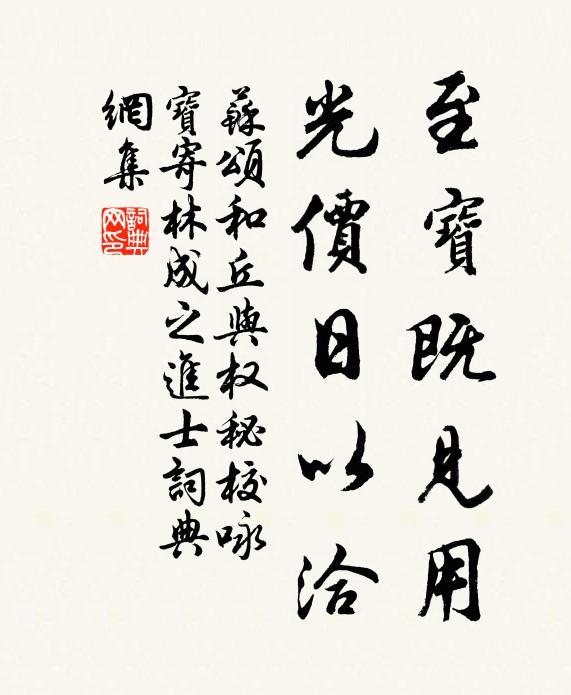 至寶既見用
光價日以洽
蘇頌和丘與权秘校咏
寶寄林成之進士詞典
網集
詞典网印